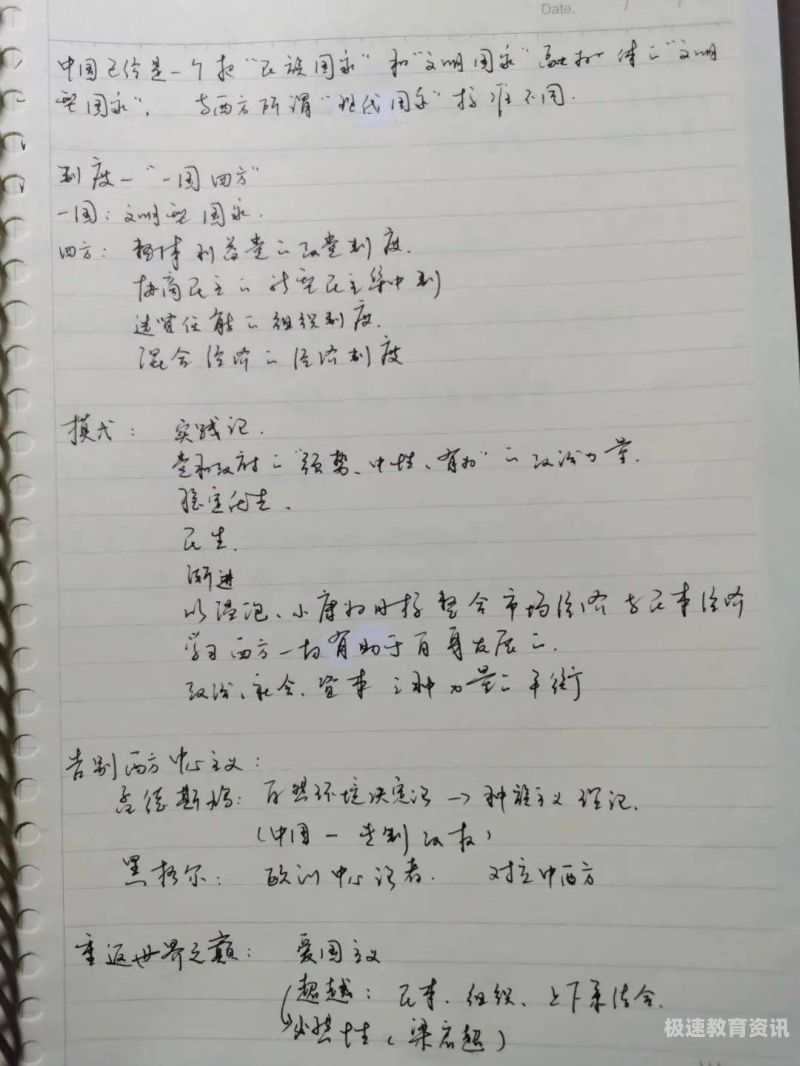 Date.
中国已经是一个把“民族国家”和“文明国家”融为一体的“文明
型国家”,与西方所谓“现代国家”标准不同.
制度—“一国四方”
一国:文明型国家.
四方:整体利益党的政党制度.
协商民主的新型民主集中制
选贤任能的组织制度.
混合经济的经济制度
模式:实践记.
党和政府的“强势、中性、有为”的政治力量.
稳定优先.
民生.
渐进
以温饱、小康为目标 整合市场经济与民本经济
学习西方一切有助于自身发展的.
政治、社会、资本三种力量的平衡
告别西方中心主义:
孟德斯鸠:自然环境决定论→种族主义理论.
(中国—专制政权)
黑格尔:欧洲中心论者. 对立中西方
重返世界之巅:爱国主义
超越:民本、组织、上下系结合.
必然性(梁启超)
极速教育资讯